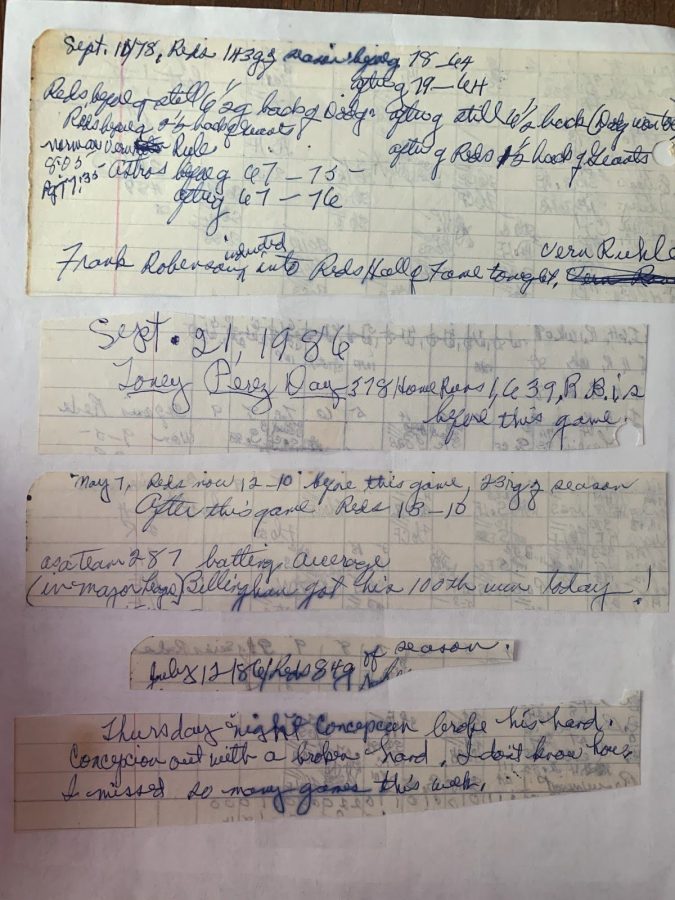 Sept. 11/78, Reds 143g of season before g 78-64
after g 79-64
Reds before g still 6 1/2 g back of Dodg. after g still 6 1/2 back (Dodg won
Reds before g 2 1/2 back of Giants
after g Reds 1 1/2 back of Giants
norm Rule
8:05
Astros before g 67-75-
7:35
after g 67-76
Vern Ruhle
Frank Robinson inducted into Reds Hall of Fame tonight.
Sept. 21, 1986
Toney Perez Day 378 Home Runs 1,639, R.B.i.s
before this game.
May 7, Reds now 12-10 before this game, 23rd g of season
After this game Reds 13-10
as a team 287 batting average
(in major Legs) Billingham got his 100th win today!
July 12/86/Reds 84 g of season.
Thursday night Concepcion broke his hand.
Concepcion out with a broken hand. I don't know how
I missed so many games this week.